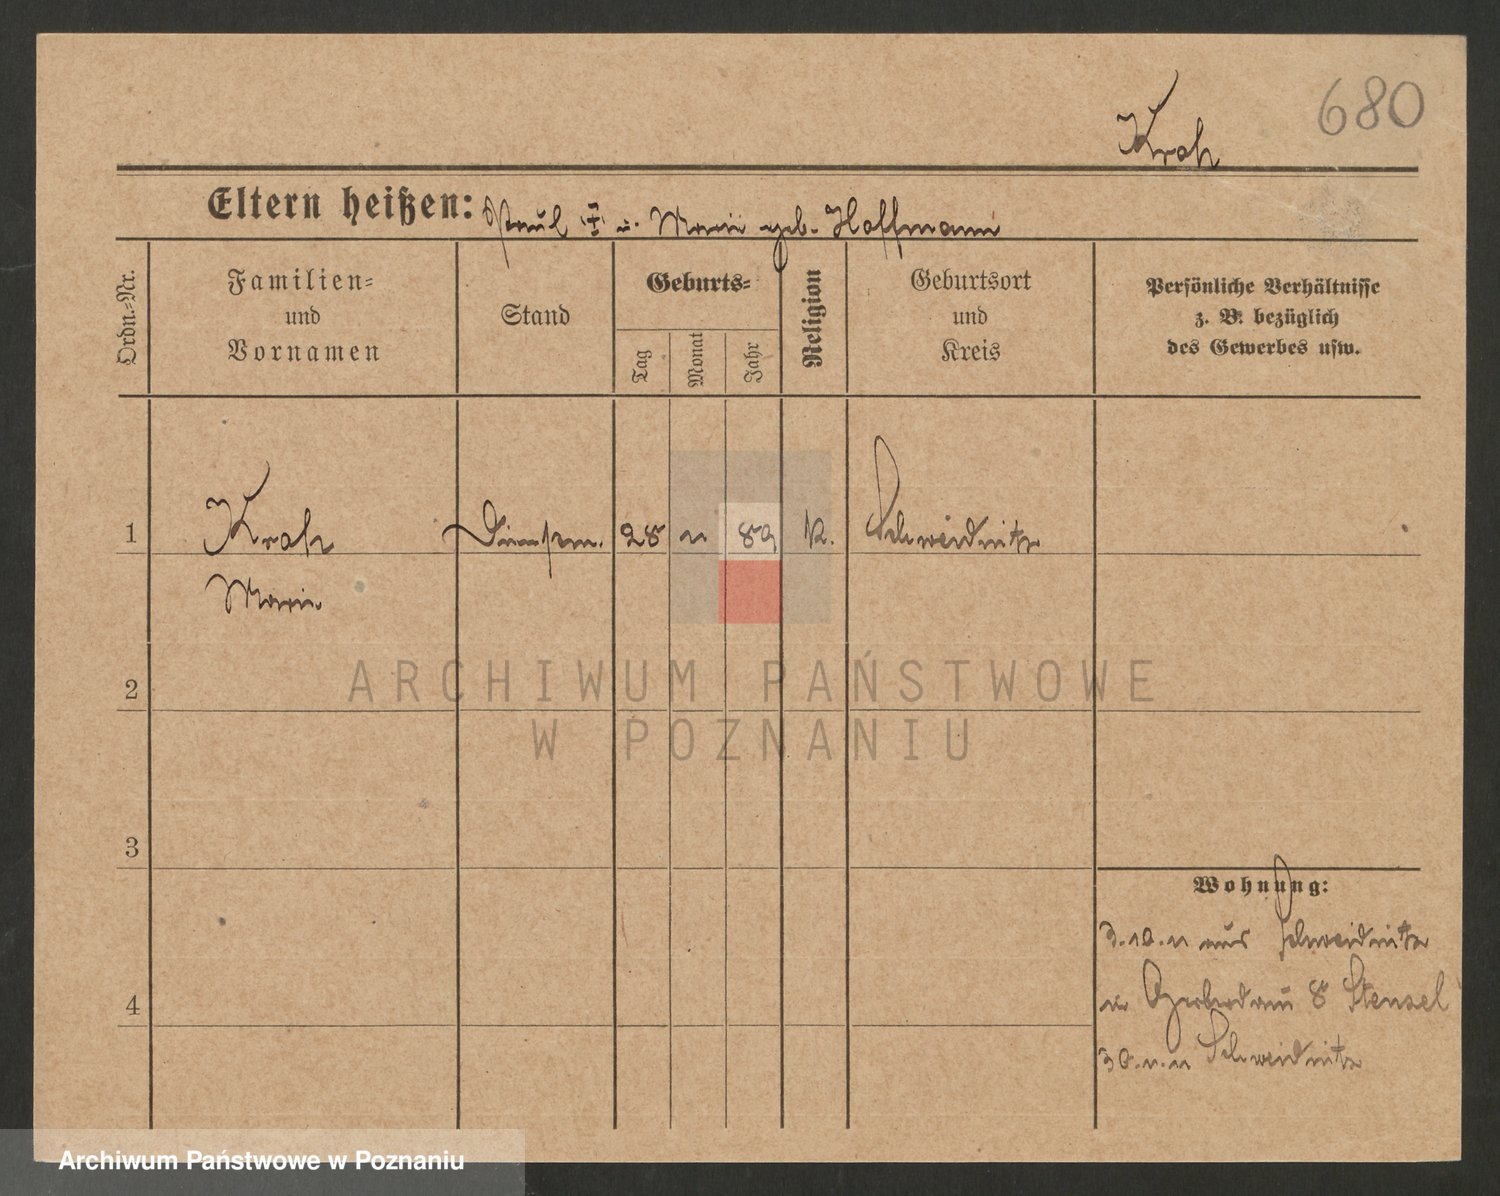 680
Krah
Eltern heißen: Paul † u. Marie geb. Hoffmann
Ordn.-Nr.
Familien=
und
Vornamen
Stand
Geburts=
Tag
Monat
Jahr
Religion
Geburtsort
und
Kreis
Persönliche Verhältnisse
z. B. bezüglich
des Gewerbes usw.
1
Krah
28
11
89
K.
Schweidnitz
Marie
ARCHIWUM PAŃSTWOWE
W POZNANIU
2
3
4
Wohnung:
3.10.11 aus Schweidnitz
8 Stensel
30.11.11 Schweidnitz
Archiwum Państwowe w Poznaniu